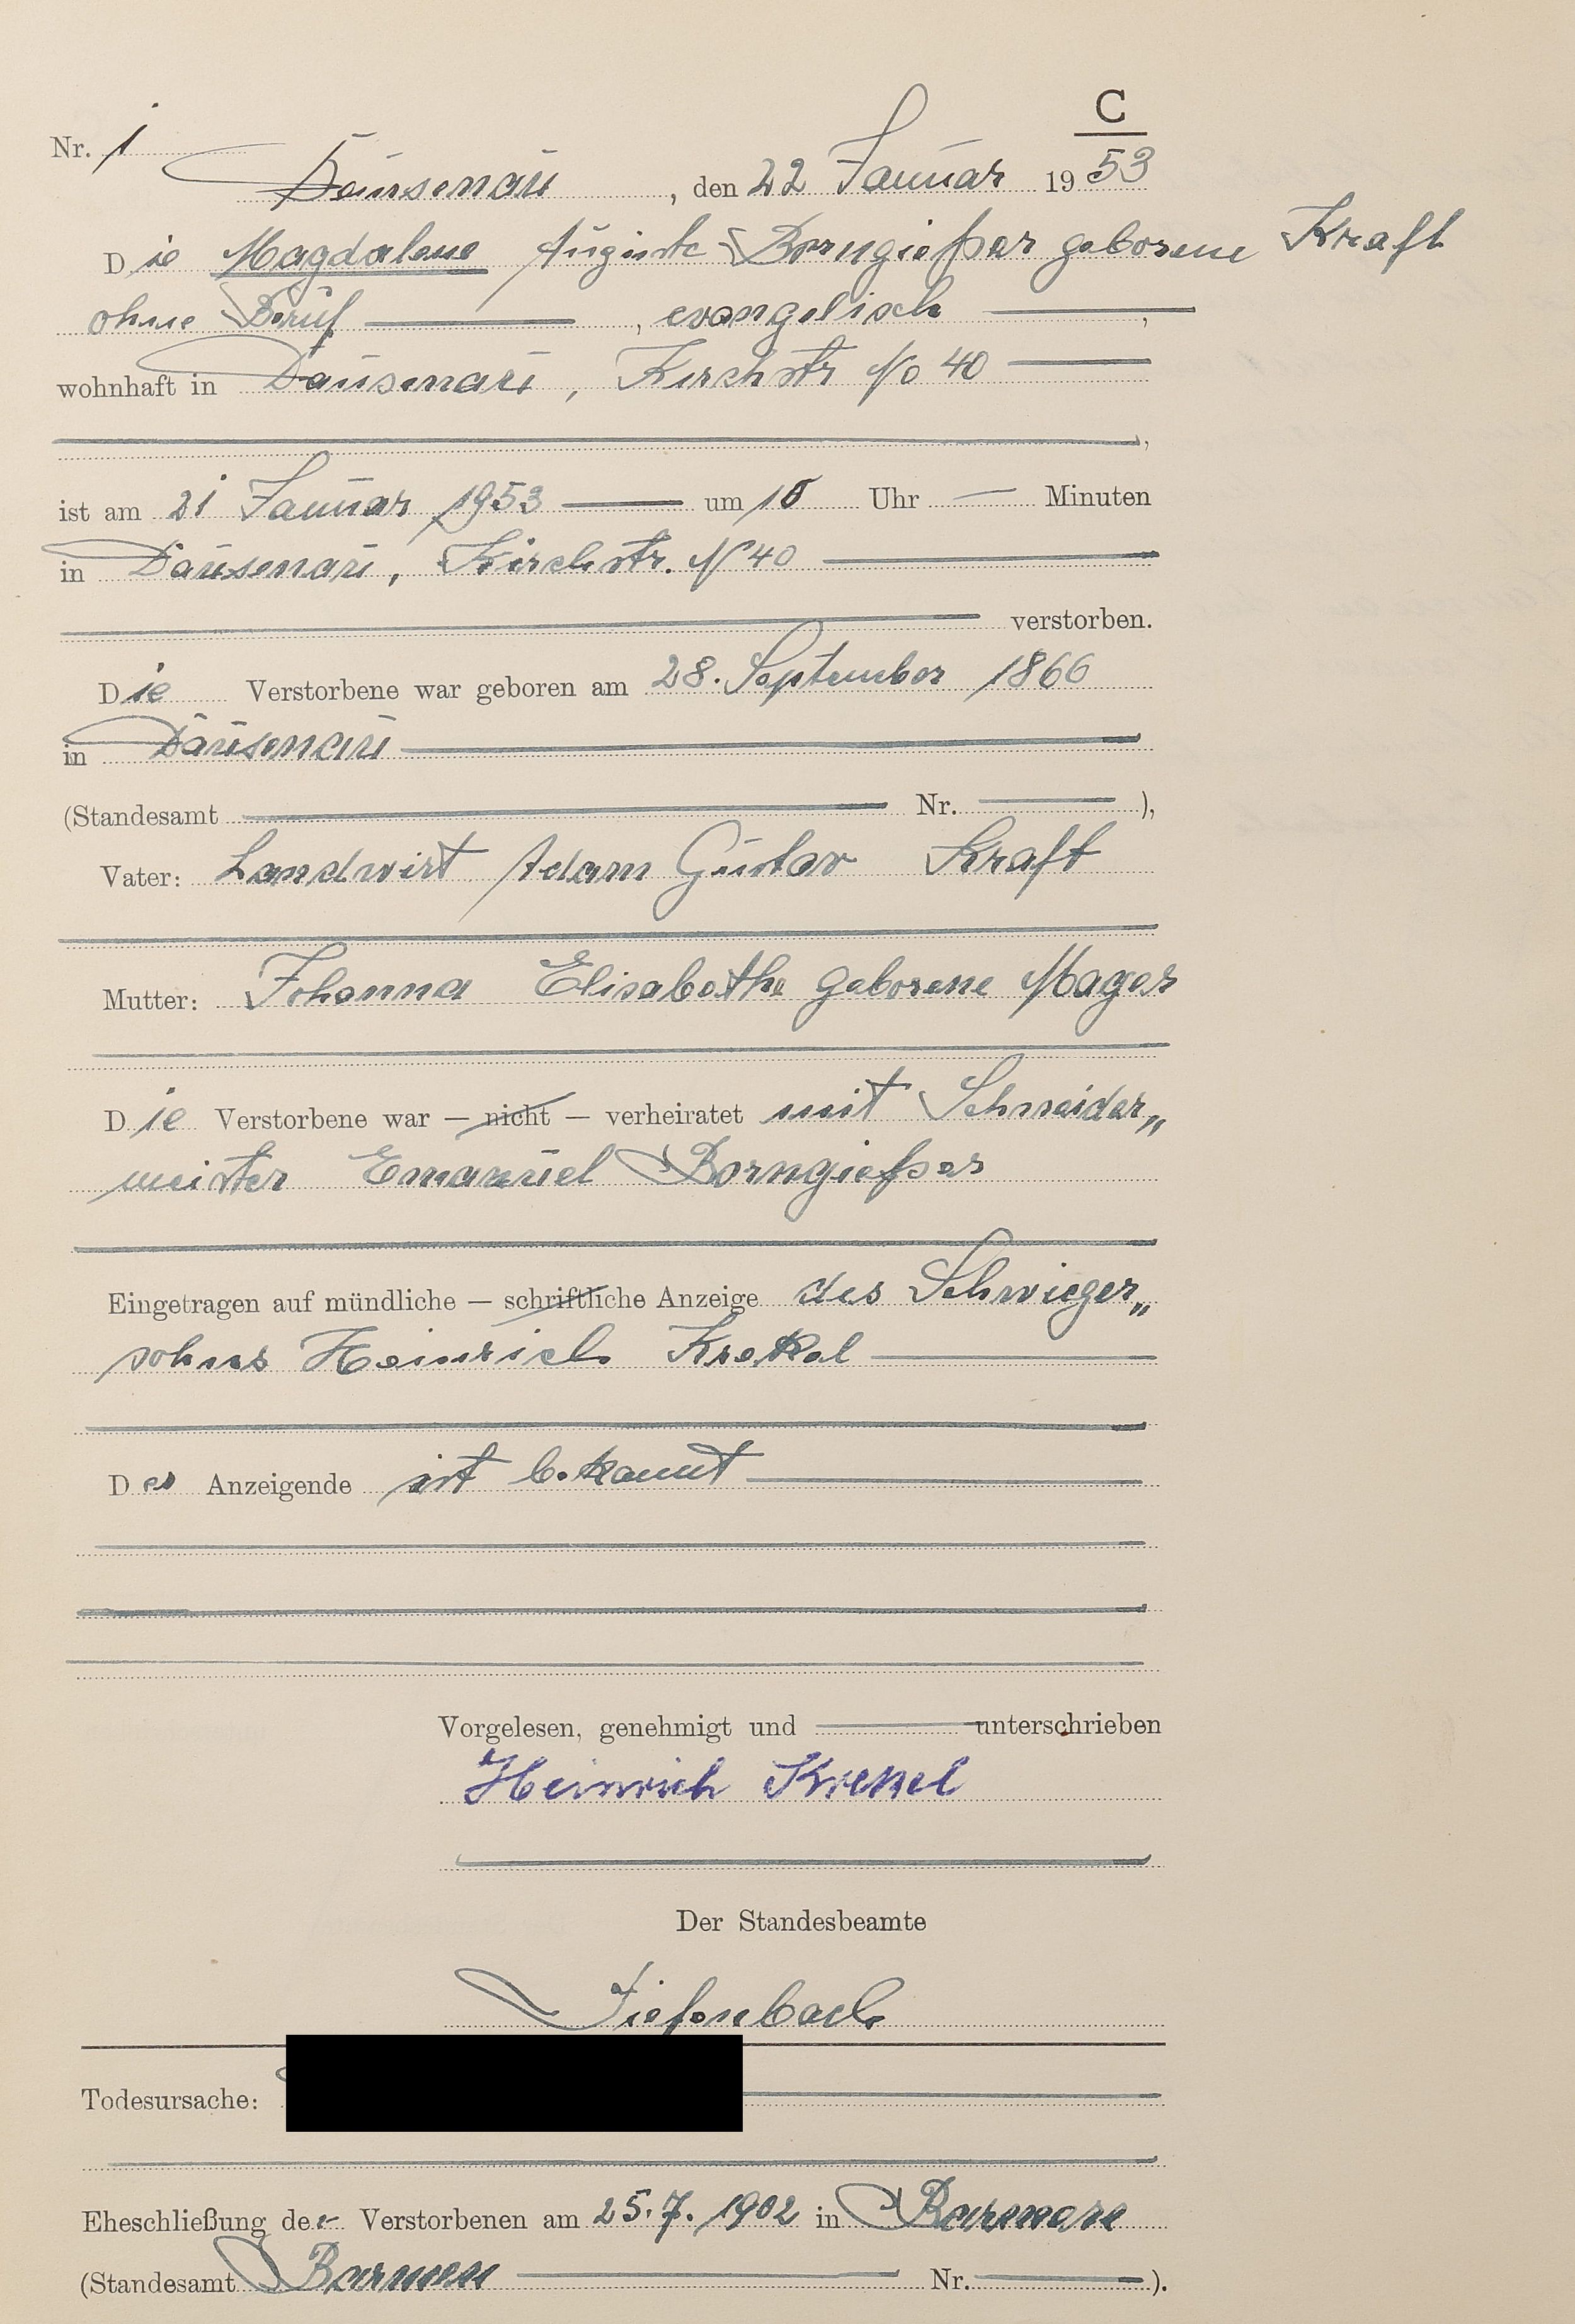 C
Nr. 1
Dausenau, den 22 Januar 1953
Die Magdalene Auguste Borngießer geborene Kraft
ohne Beruf —, evangelisch —,
wohnhaft in Dausenau, Kirchstr No 40 —
,
ist am 21 Januar 1953 — um 10 Uhr — Minuten
in Dausenau, Kirchstr. N 40 —
verstorben.
Die Verstorbene war geboren am 28. September 1866
in Dausenau —
(Standesamt — Nr. — ),
Vater: Landwirt Adam Gustav Kraft
Mutter: Johanna Elisabethe geborene Mager
Die Verstorbene war — nicht — verheiratet mit Schneider„
meister Emanuel Borngießer
Eingetragen auf mündliche — schriftliche Anzeige des Schwieger„
sohns Heinrich Krekel —
Der Anzeigende ist bekannt —
Vorgelesen, genehmigt und — unterschrieben
Heinrich Krekel
Der Standesbeamte
Tiefenbach
Todesursache:
Eheschließung der Verstorbenen am 25.7.1902 in Barmen
(Standesamt Barmen — Nr. — ).